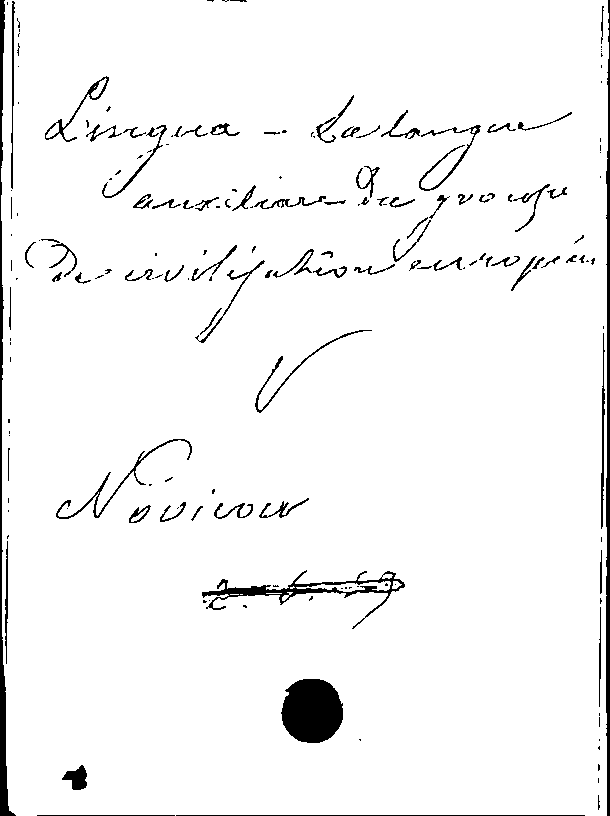 Lingua - La langue
auxiliaire du groupe
De civilisation européen
V
Novicow
2. 6. 59